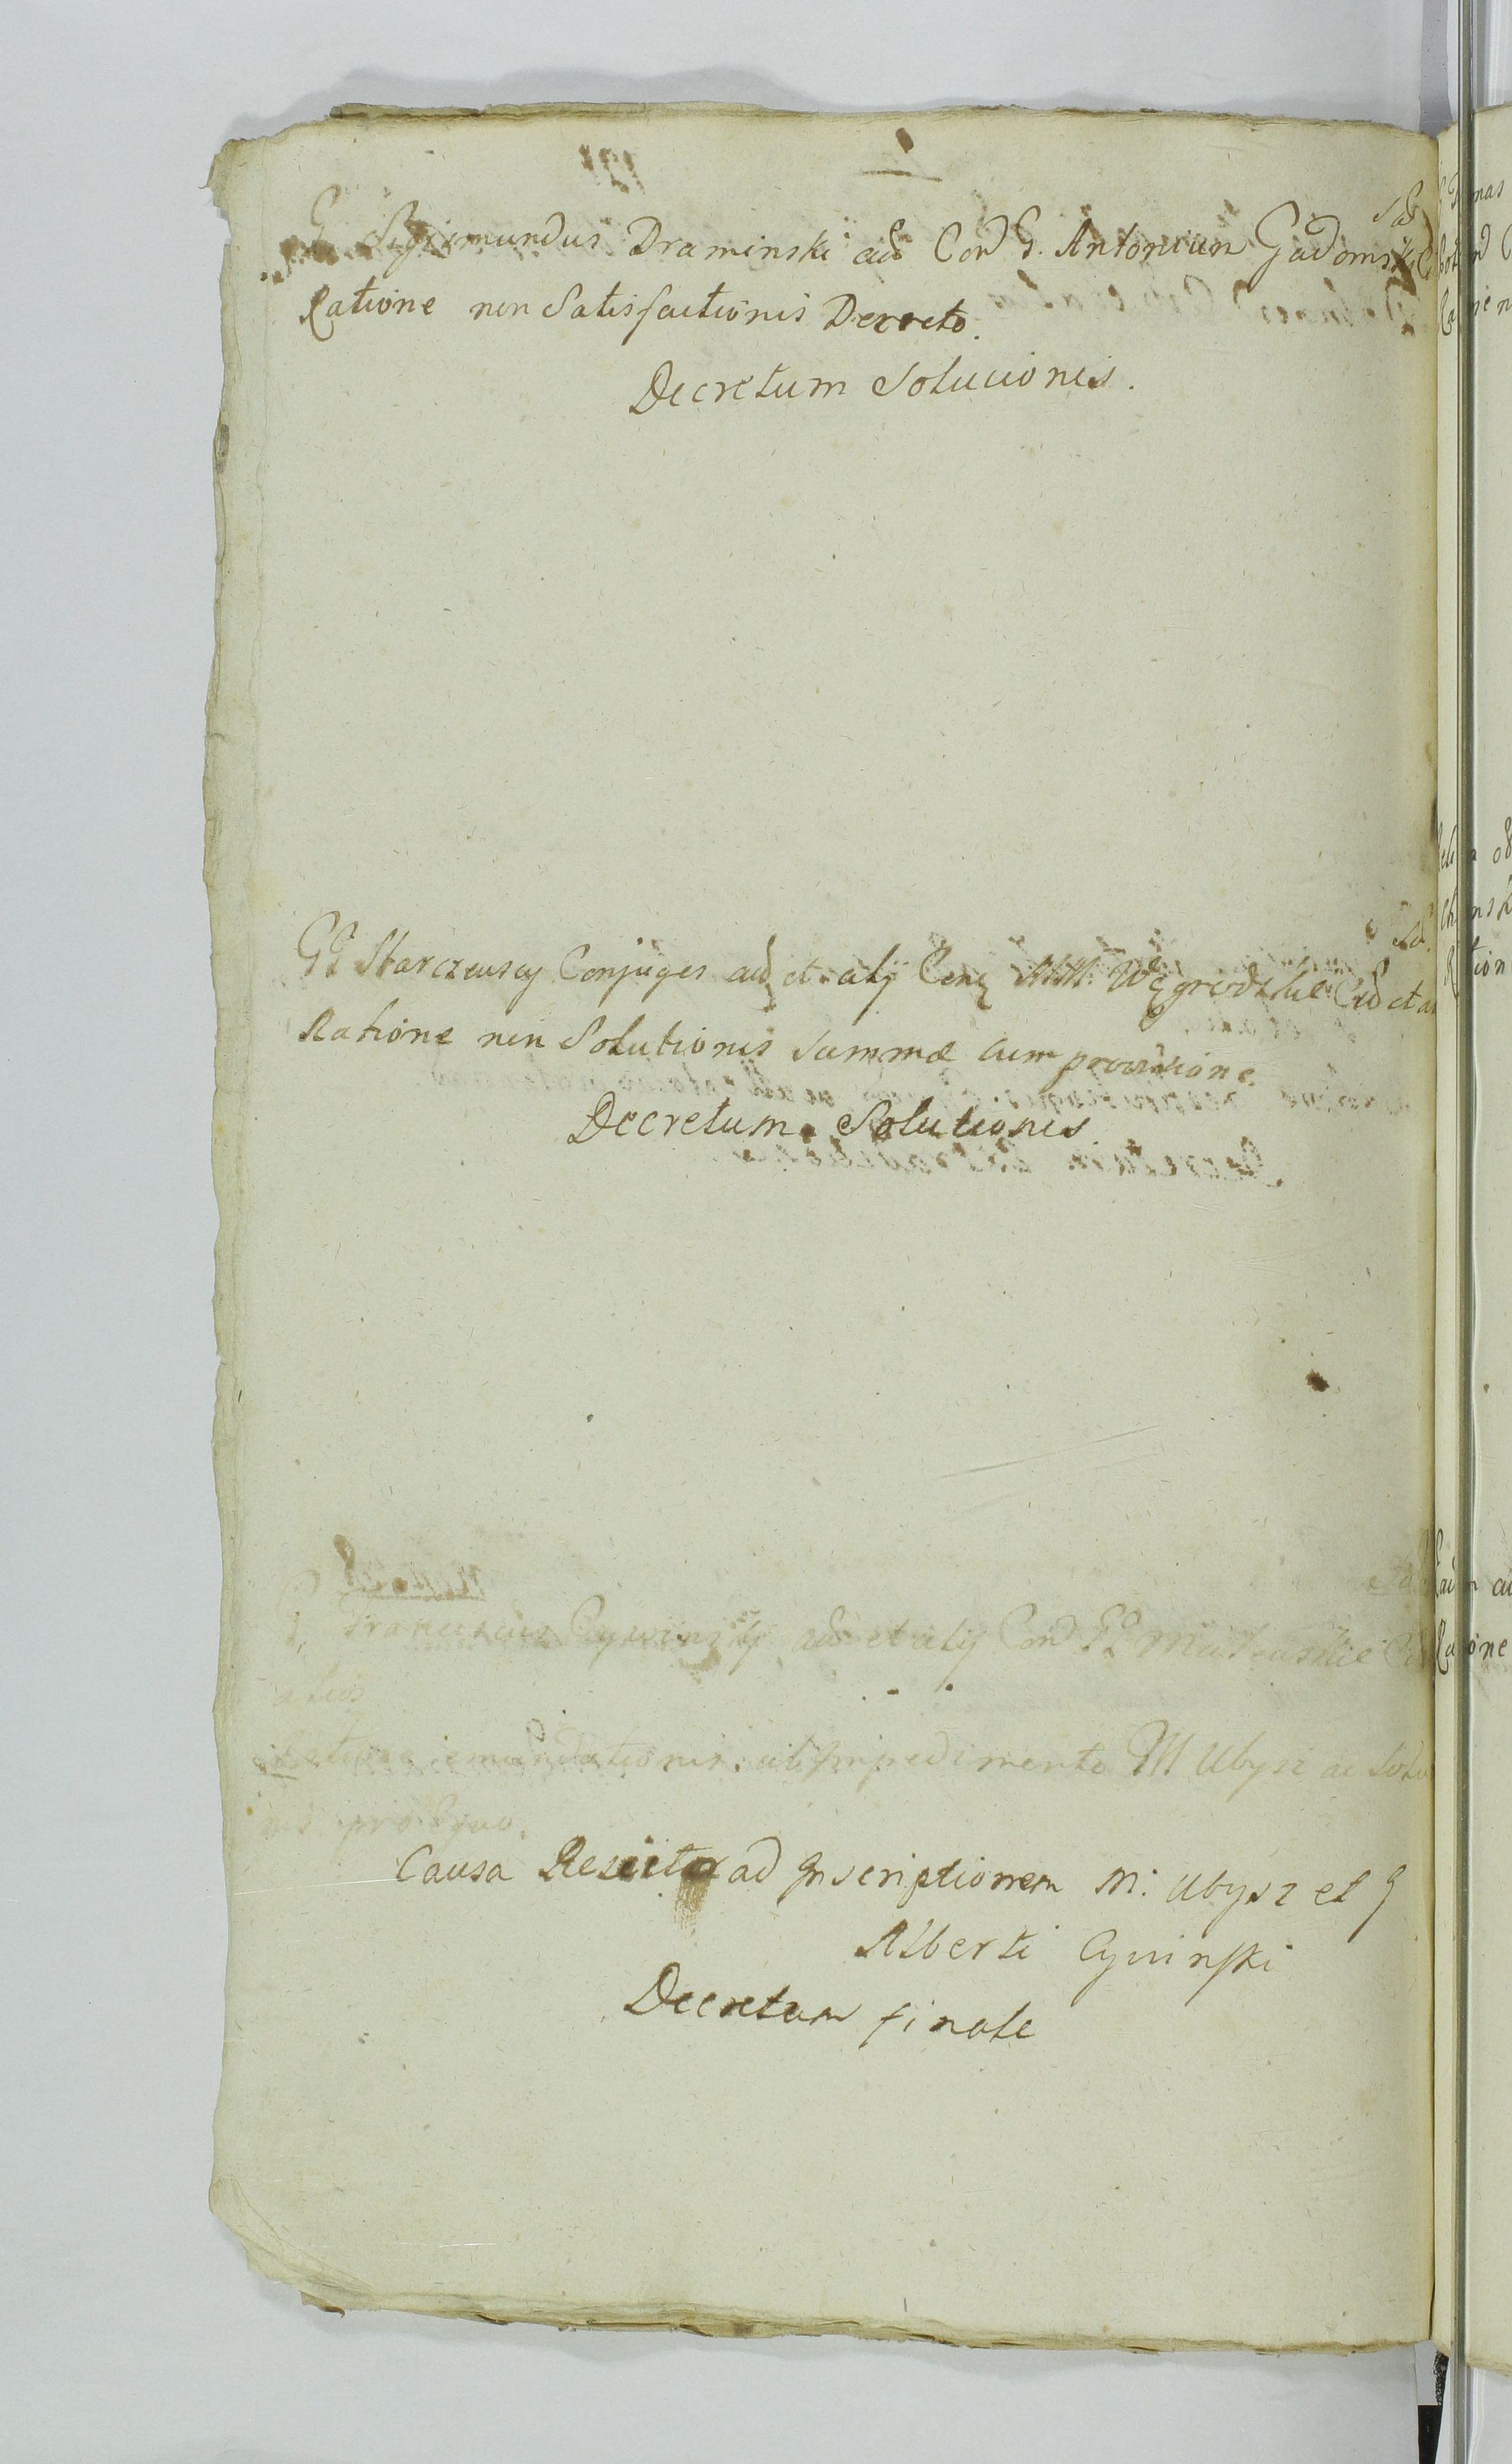 Sd
G Sigismundus Draminski ad Con G. Antonium Gadomski
Ratione non Satisfactionis Decreto.
Decretum Solucionis.
Sd.
GG Starczewscy Conjuges ad et alij Con MM. Węgrodzkie et
Ratione non Solutionis Summæ cum provisione.
Decretum Solutionis.
G. Franciscus Cywinsky ad et alij Con
alios
emundationis ab Impedimento M Ubysz ac
pro
Causa ad Inscriptionem M: Ubysz et G
Alberti Cywinski
Decretum finale